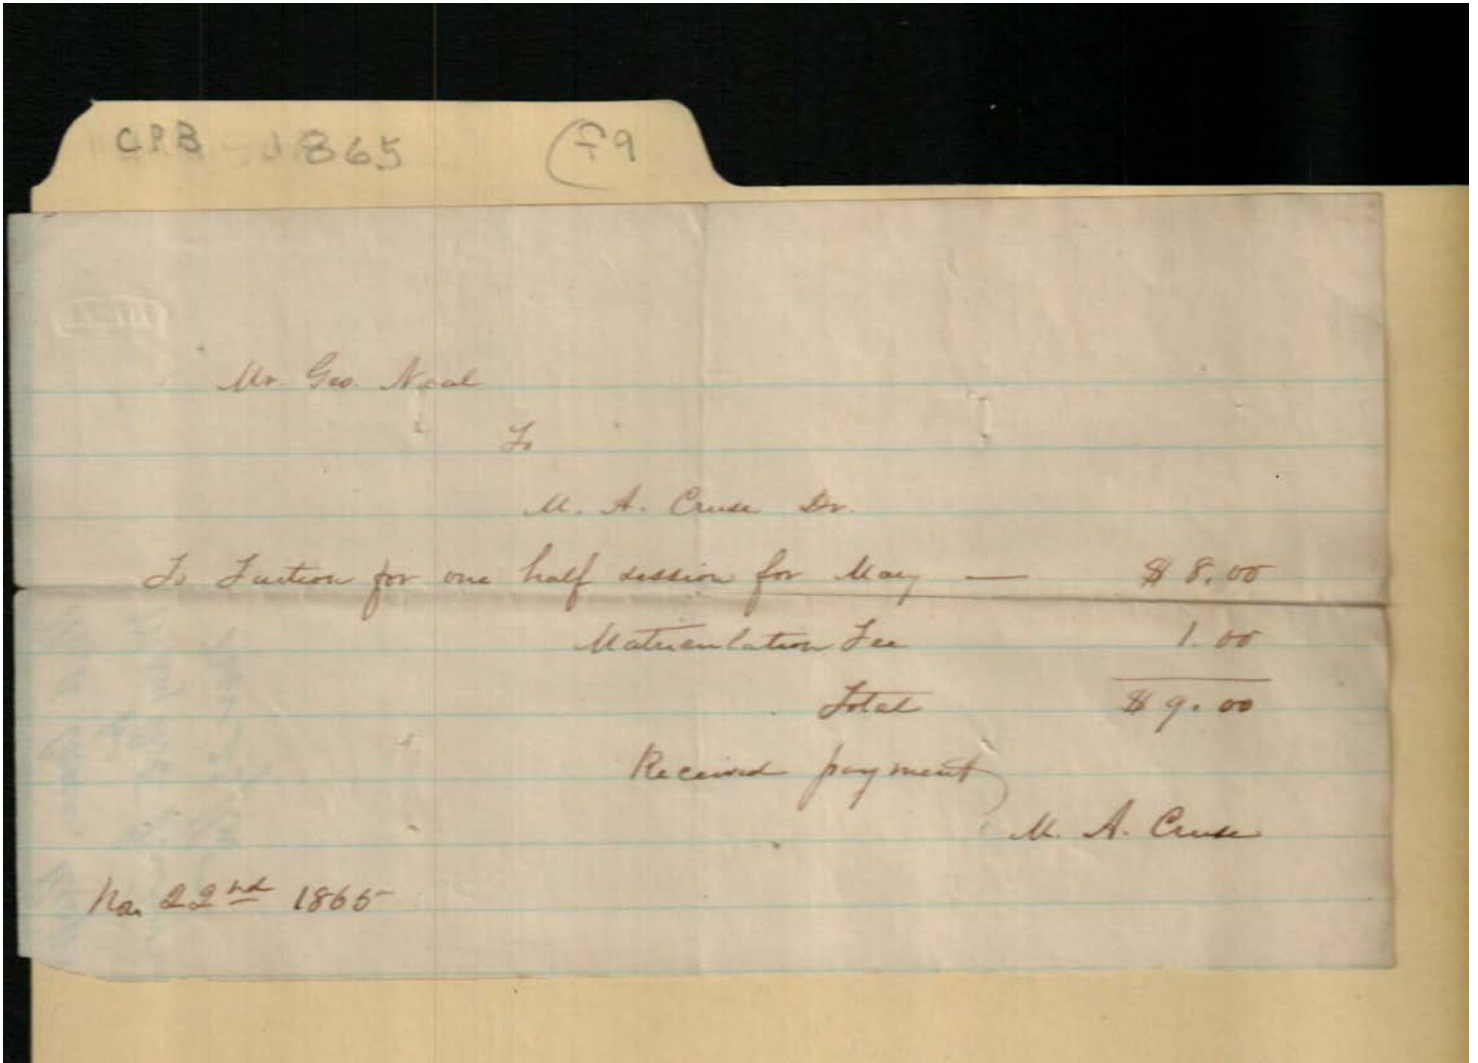 CPB 1865 (f9
Mr. Geo. Neal
To
M. A. Cruse Dr.
To Tuition for one half session for Mary — $8.00
Matriculation Fee 1.00
Total $9.00
Received payment
M. A. Cruse
22nd 1865